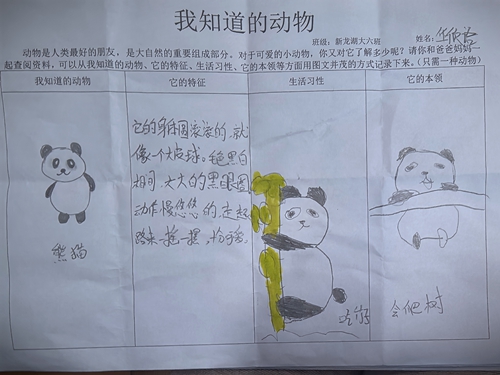 我知道的动物
班级：新龙湖大六班 姓名：华
动物是人类最好的朋友，是大自然的重要组成部分。对于可爱的小动物，你又对它了解多少呢？请你和爸爸妈妈一
起查阅资料，可以从我知道的动物、它的特征、生活习性、它的本领等方面用图文并茂的方式记录下来。（只需一种动物）
我知道的动物 它的特征 生活习性 它的本领
它的身体圆滚滚的，就
像一个大皮球。毛色黑白
相间，大大的黑眼圈
动作慢悠悠的，走起
路来一摇一摆，
熊猫
会爬树